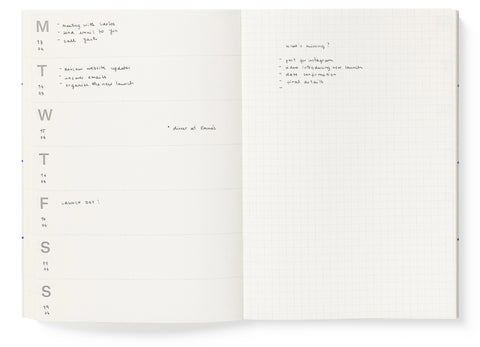 M
- meeting with
- send email to
- call
T
- review website updates
- answer emails
- organise the new launch
W
* dinner at Emma's
T
F
LAUNCH DAY!
S
S
what's missing?
- post for instagram
- video introducing new launch
- date confirmation
- final details
-